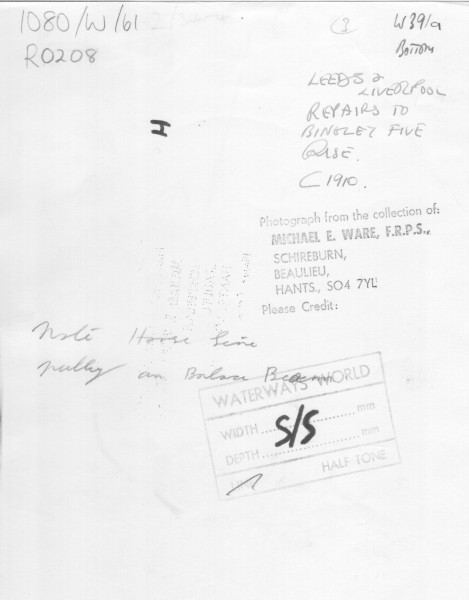 1080/W/61
R0208
3
W39/a
Bottom
LEEDS &
LIVERPOOL
REPAIRS TO
BINGLEY FIVE
RISE.
C1910.
H
Photograph from the collection of:
MICHAEL E. WARE, F.R.P.S.,
SCHIREBURN,
BEAULIEU,
HANTS., SO4 7YL
Please Credit:
Note Horse Line
pully on Balace Beam
WATERWAYS WORLD
WIDTH ............ mm
S/S
DEPTH ............ mm
LINE HALF TONE